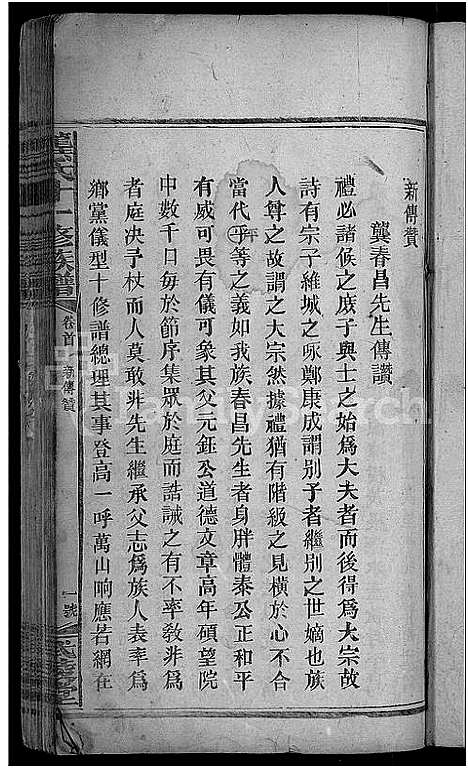 新傳贊
龔春昌先生傳讚
禮必諸候之庶子與士之始爲大夫者而後得爲大宗故
詩有宗子維城之咏鄭康成謂別子者繼別之世嫡也族
人尊之故謂之大宗然據禮猶有階級之見橫於心不合
當代平等之義如我族春昌先生者身胖體泰公正和平
有威可畏有儀可象其父元鈺公道德文章高年碩望院
中數千口毎於節序集眾於庭而誥誡之有不率敎非爲
者庭决予杖而人莫敢非先生繼承父志爲族人表率爲
鄉黨儀型十修譜總理其事登高一呼萬山响應若網在
龔氏十一修族譜
卷首
新傳贊
一號